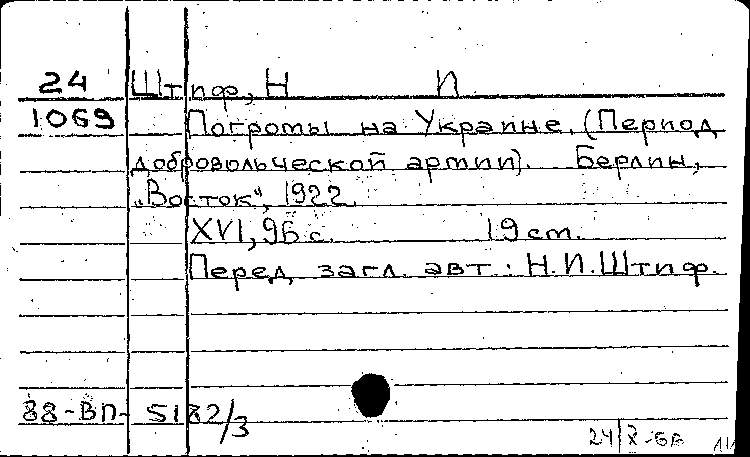 24 Штиф, Н И
1069 Погромы на Украине. (Период
добровольческой армии). Берлин,
„Восток", 1922.
XVI, 96 с. 19 cm.
Перед загл. авт.: Н.И.Штиф.
88-ВП- 5182/3
24/X-66